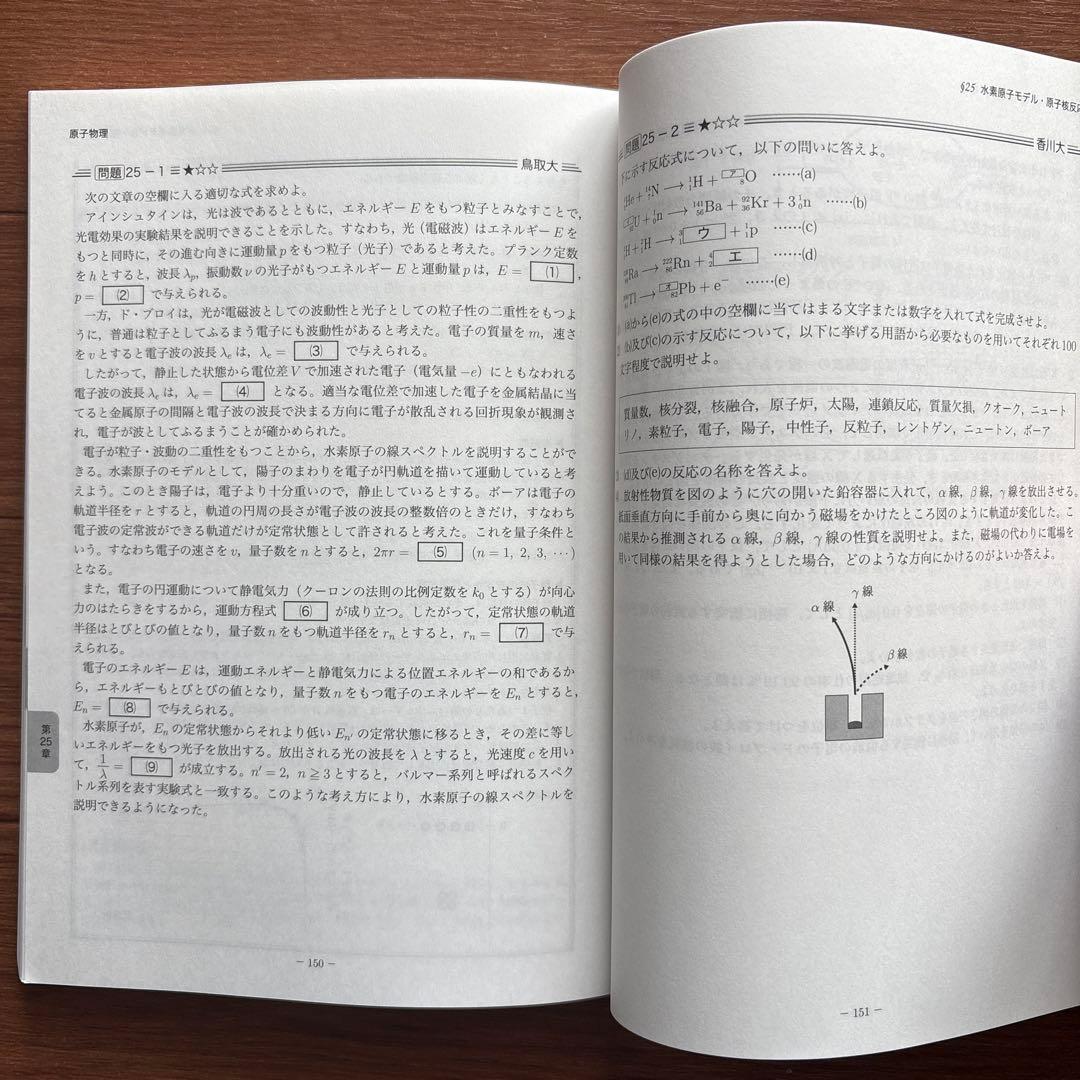 原子物理
問題 25－1 ≡★☆☆ 鳥取大
次の文章の空欄に入る適切な式を求めよ。
アインシュタインは，光は波であるとともに，エネルギーEをもつ粒子とみなすことで，
光電効果の実験結果を説明できることを示した。すなわち，光（電磁波）はエネルギーEを
もつと同時に，その進む向きに運動量pをもつ粒子（光子）であると考えた。プランク定数
をhとすると，波長λp，振動数νの光子がもつエネルギーEと運動量pは，E＝ (1) ，
p＝ (2) で与えられる。
一方，ド・ブロイは，光が電磁波としての波動性と光子としての粒子性の二重性をもつよ
うに，普通は粒子としてふるまう電子にも波動性があると考えた。電子の質量をm，速さ
をvとすると電子波の波長λeは，λe＝ (3) で与えられる。
したがって，静止した状態から電位差Vで加速された電子（電気量−e）にともなわれる
電子波の波長λeは，λe＝ (4) となる。適当な電位差で加速した電子を金属結晶に当
てると金属原子の間隔と電子波の波長で決まる方向に電子が散乱される回折現象が観測さ
れ，電子が波としてふるまうことが確かめられた。
電子が粒子・波動の二重性をもつことから，水素原子の線スペクトルを説明することがで
きる。水素原子のモデルとして，陽子のまわりを電子が円軌道を描いて運動していると考
えよう。このとき陽子は，電子より十分重いので，静止しているとする。ボーアは電子の
軌道半径をrとすると，軌道の円周の長さが電子波の波長の整数倍のときだけ，すなわち
電子波の定常波ができる軌道だけが定常状態として許されると考えた。これを量子条件と
いう。すなわち電子の速さをv，量子数をnとすると，2πr＝ (5) (n＝1, 2, 3, …)
となる。
また，電子の円運動について静電気力（クーロンの法則の比例定数をk0とする）が向心
力のはたらきをするから，運動方程式 (6) が成り立つ。したがって，定常状態の軌道
半径はとびとびの値となり，量子数nをもつ軌道半径をrnとすると，rn＝ (7) で与
えられる。
電子のエネルギーEは，運動エネルギーと静電気力による位置エネルギーの和であるか
ら，エネルギーもとびとびの値となり，量子数nをもつ電子のエネルギーをEnとすると，
En＝ (8) で与えられる。
水素原子が，Enの定常状態からそれより低いEn′の定常状態に移るとき，その差に等し
いエネルギーをもつ光子を放出する。放出される光の波長をλとすると，光速度cを用い
て，1/λ＝ (9) が成立する。n′＝2，n≧3とすると，バルマー系列と呼ばれるスペク
トル系列を表す実験式と一致する。このような考え方により，水素原子の線スペクトルを
説明できるようになった。
第25章
− 150 −
§25 水素原子モデル・原子核反応
問題 25－2 ≡★☆☆ 香川大
下に示す反応式について，以下の問いに答えよ。
He＋¹⁴₇N ⟶ ¹₁H＋ ア ₈O ……(a)
U＋¹₀n ⟶ ¹⁴¹₅₆Ba＋⁹²₃₆Kr＋3¹₀n ……(b)
H＋²₁H ⟶ ³₁ ウ ＋¹₁p ……(c)
Ra ⟶ ²²²₈₆Rn＋⁴₂ エ ……(d)
Tl ⟶ オ ₈₂Pb＋e⁻ ……(e)
(a)から(e)の式の中の空欄に当てはまる文字または数字を入れて式を完成させよ。
(b)及び(c)の示す反応について，以下に挙げる用語から必要なものを用いてそれぞれ100
文字程度で説明せよ。
質量数，核分裂，核融合，原子炉，太陽，連鎖反応，質量欠損，クオーク，ニュート
リノ，素粒子，電子，陽子，中性子，反粒子，レントゲン，ニュートン，ボーア
(d)及び(e)の反応の名称を答えよ。
放射性物質を図のように穴の開いた鉛容器に入れて，α線，β線，γ線を放出させる。
紙面垂直方向に手前から奥に向かう磁場をかけたところ図のように軌道が変化した。こ
の結果から推測されるα線，β線，γ線の性質を説明せよ。また，磁場の代わりに電場を
用いて同様の結果を得ようとした場合，どのような方向にかけるのがよいか答えよ。
γ線
α線
β線
− 151 −